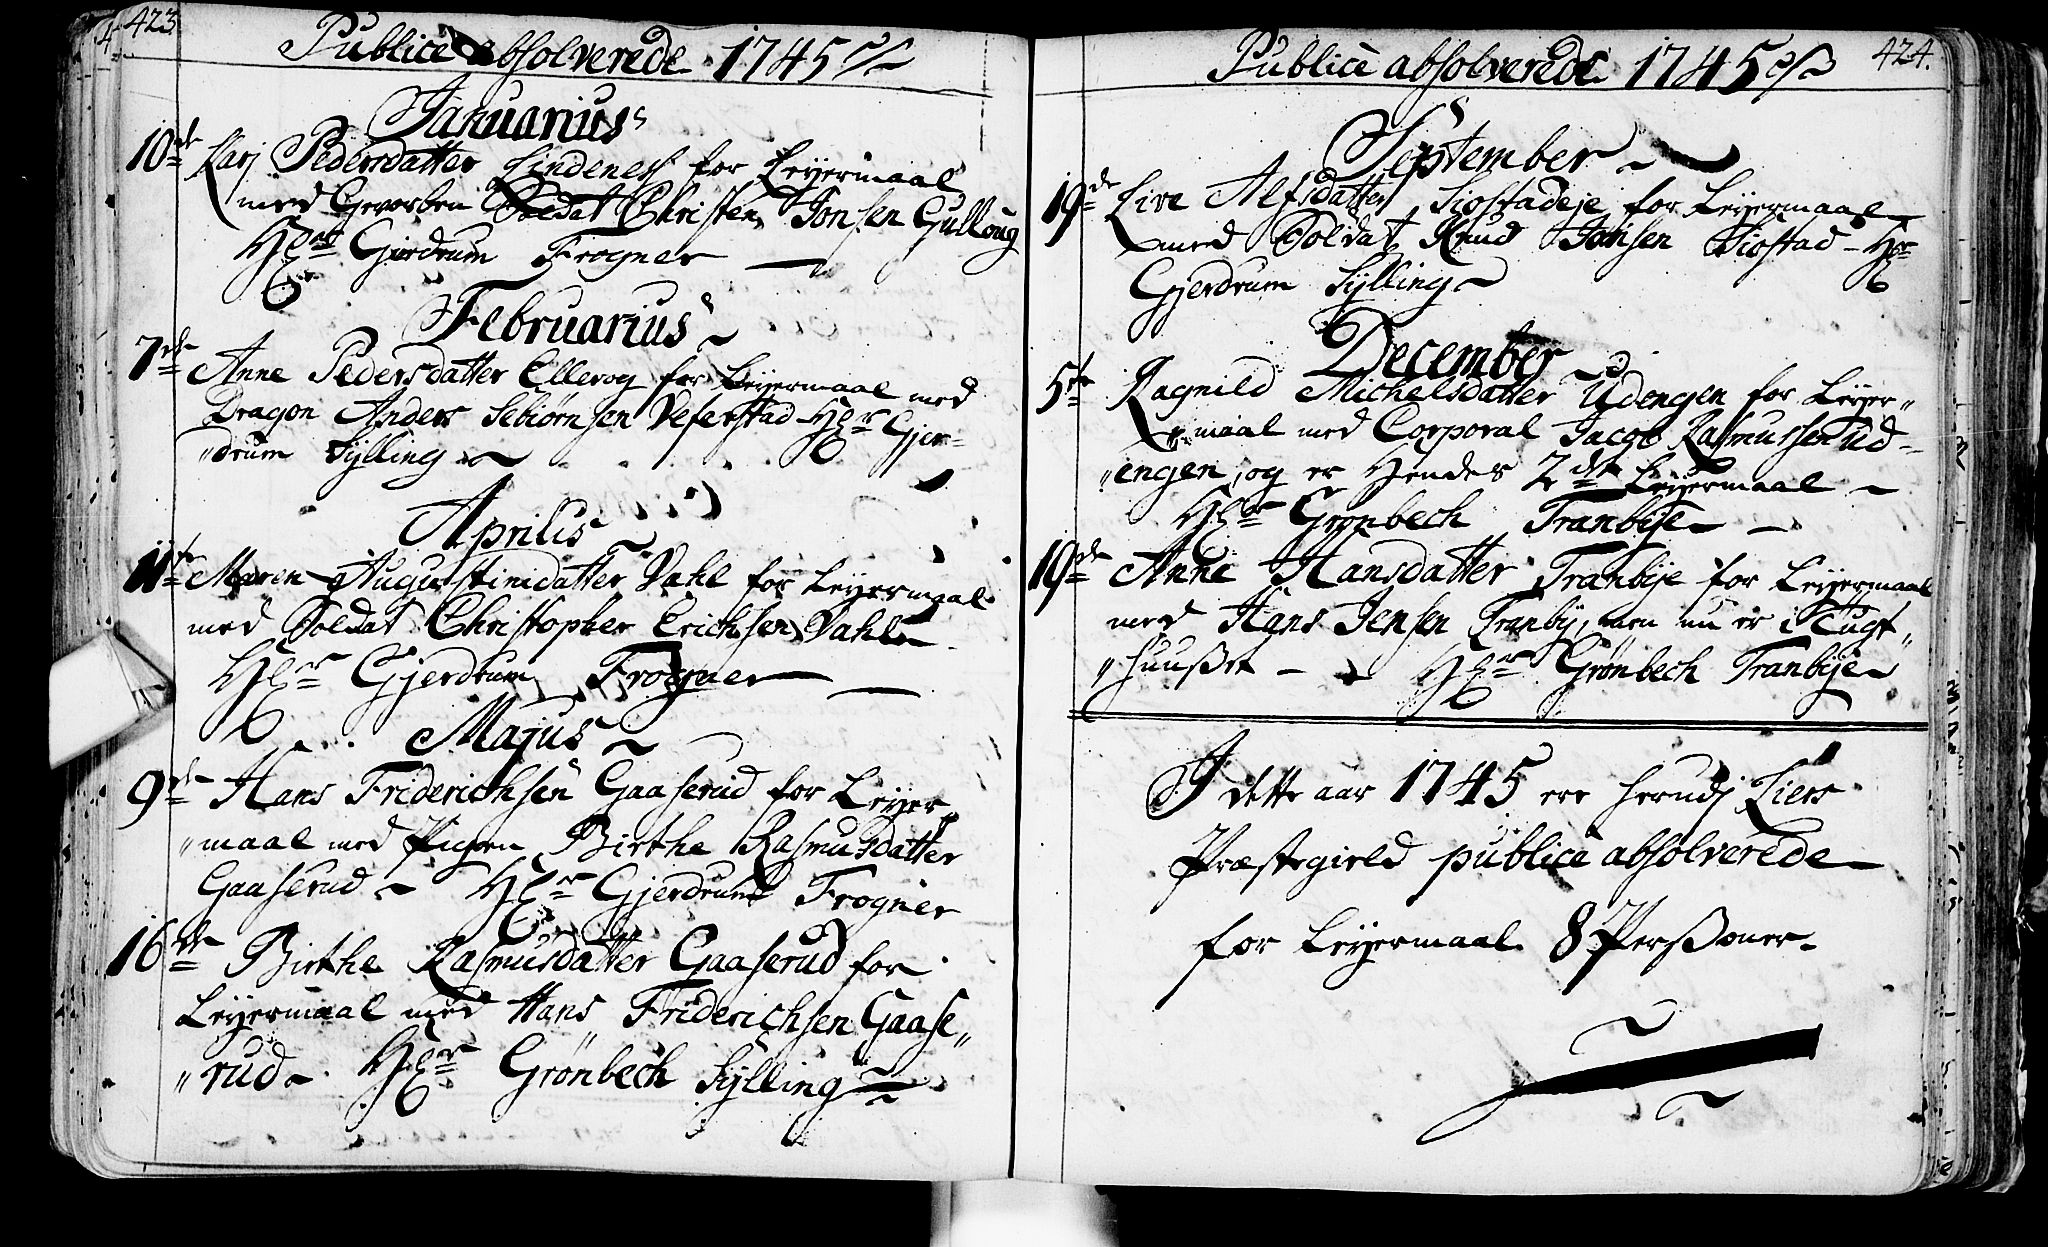 423
Publice absolverede 1745
Januarius
10de Kari Pedersdatter Lindenes for Leyermaal
med Geworben Soldat Christen Jonsen Gulloug
Hr Gierdrum Frogner
Februarius
7de Anne Pedersdatter Ellerog for Leyermaal med
Dragon Anders Sebiørnsen Veserstad Hr Gjer-
drum Sylling
Aprilis
11te Maren Augustinidatter Vahl for Leyermaal
med Soldat Christopher Erichsen Vahl
Hr Gjerdrum Frogner
Majus
9de Hans Friderichsen Gaaserud for Leyer
maal med Pigen Birthe Rasmusdatter
Gaaserud Hr Gjerdrum Frogner
16de Birthe Rasmusdatter Gaaserud for
Leyermaal med Hans Friderichsen Gaase
rud Hr Grønbech Sylling
424.
Publice absolverede 1745
September
19de Live Alfsdatter Siostadeje for Leyermaal
med Soldat Knud Jonsen Siostad Hr
Gjerdrum Sylling
December
5te Ragnild Michelsdatter Udengen for Leyer
maal med Corporal Jacob Rasmussen Ud-
engen, og er Hendes 2det Leyermaal
Hr Grønbech Tranbye
19de Anne Hansdatter Tranbye for Leyermaal
med Hans Jensen Tranby, som nu er i Tugt
huuset Hr Grønbech Tranbye
I dette aar 1745 ere herudj Liers
Præstegield publice absolverede
for Leyermaal 8 Persohner